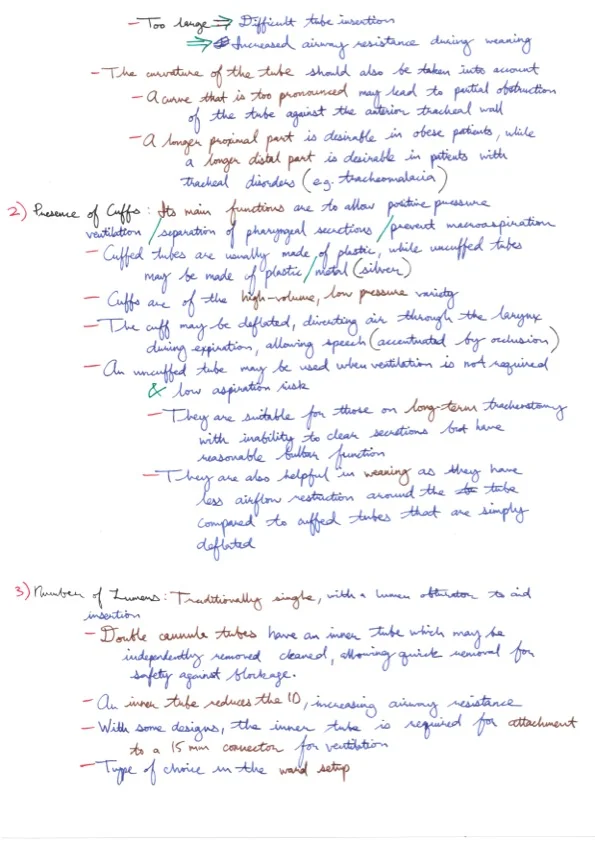 - Too large ⇒ Difficult tube insertion
⇒ Increased airway resistance during weaning
- The curvature of the tube should also be taken into account
- A curve that is too pronounced may lead to partial obstruction
of the tube against the anterior tracheal wall
- A longer proximal part is desirable in obese patients, while
a longer distal part is desirable in patients with
tracheal disorders (e.g. tracheomalacia)
2) Presence of Cuffs: Its main functions are to allow positive pressure
ventilation / separation of pharyngal secretions / prevent macroaspiration
- Cuffed tubes are usually made of plastic, while uncuffed tubes
may be made of plastic / metal (silver)
- Cuffs are of the high-volume, low pressure variety
- The cuff may be deflated, diverting air through the larynx
during expiration, allowing speech (accentuated by occlusion)
- An uncuffed tube may be used when ventilation is not required
& low aspiration risk
- They are suitable for those on long-term tracheostomy
with inability to clear secretions but have
reasonable bulbar function
- They are also helpful in weaning as they have
less airflow restriction around the tube
compared to cuffed tubes that are simply
deflated
3) Number of Lumens: Traditionally single, with a lumen obturator to aid
insertion
- Double cannula tubes have an inner tube which may be
independently removed cleaned, allowing quick removal for
safety against blockage.
- An inner tube reduces the ID, increasing airway resistance
- With some designs, the inner tube is required for attachment
to a 15 mm connector for ventilation
- Type of choice in the ward setup